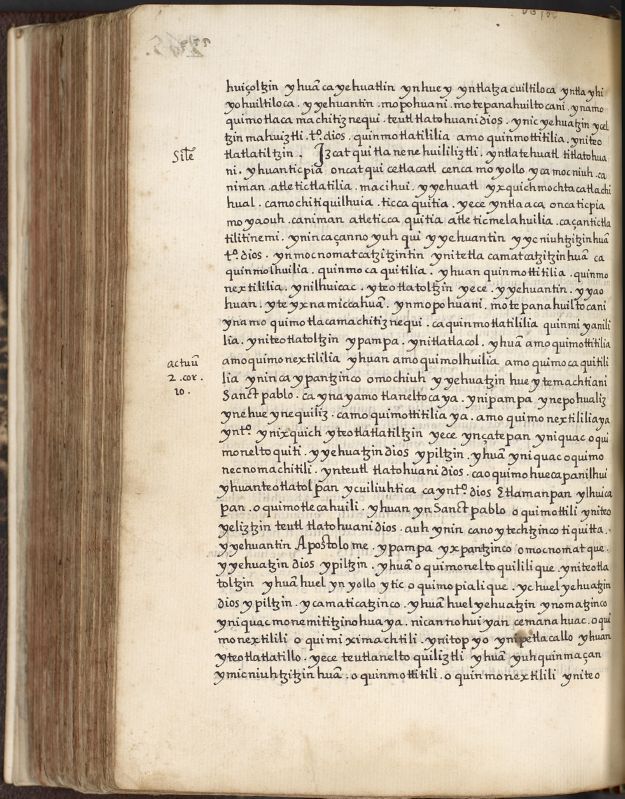 huiçoltzin yhuā ca yehuatlin ynhue y yntlatza cuiltiloca yntla yhi
yohuiltiloca . y yehuantin . mopohuani . motepanahuiltocani . ynamo
quimotlaca machitiznequi . teutl tlatohuani dios . ynic yehuatzin ycel
tzin mahuiztli . tº. dios . quinmotlatililia amo quinmottitilia . yniteo
Site
tlatlatiltzin . Izcat qui tla nene huililiztli . yntlatehuatl titlatohua
ni . yhuanticpia oncat qui cetlacatl cenca moyollo yca mocniuh . ca
niman atle tictlatilia . macihui . yyehuatl yxquich mochta catlachi
hual . camochi tiquilhuia . ticca quitia . yece yntla aca oncaticpia
moyaouh . caniman atleticca quitia atle ticmelahuilia . caçantictla
tilitinemi . ynin caçanno yuh qui y yehuantin yyc niuhtzitzinhuā
tº. dios . yn mocnomatcatzitzintin ynitetla camatcatzitzinhuā ca
quinmolhuilia . quinmo ca quitilia . yhuan quinmottitilia . quinmo
nextililia . ynilhuicac . yteotlatoltzin yece . yyehuantin . yyao
huan . yte yxnamiccahuā . ynmopohuani . motepanahuiltocani
ynamo quimotlacamachitiznequi . ca quinmotlatililia quinmi yanili
lia . yniteotlatoltzin ypampa . ynitlatlacol . yhuā amo quimottitilia
actuū
2 . cor .
10 .
amo quimo nextililia yhuan amo quimolhuilia amo quimoca quitili
lia ynin ca ypantzinco omochiuh yyehuatzin hue ytemachtiani
Sanct pablo . ca yna yamo tlaneltocaya . ynipampa ynepohualiz
ynehue ynequiliz . camo quimottitilia ya . amo quimo nextililiaya
yntº. ynixquich yteotlatlatiltzin yece ynçatepan yniquac oqui
moneltoquiti . yyehuatzin dios ypiltzin . yhuā yniquac oquimo
necnomachitili . ynteutl tlatohuani dios . cao quimohuecapanilhui
yhuanteotlatolpan ycuiliuhtica ca yntº. dios Etlamanpan ylhuica
pan . o quimotlecahuili . yhuan yn Sanct pablo o quimottili yniteo
yeliztzin teutl tlatohuani dios . auh ynin cano ytechtzinco tiquitta .
yyehuantin Apostolome . ypampa yxpantzinco omocnomatque .
yyehuatzin dios ypiltzin . yhuā o quimonelto quilili que . yniteotla
toltzin yhuā huel yn yollo ytic o quimopialique . yc huel yehuatzin
dios ypiltzin . ycamaticatzinco . yhuā huel yehuatzin ynomatzinco
yniquac monemitiTzinohuaya . nican tnohui yan cemanahuac . o qui
monextilili o quimi ximachtili . ynitopyo ynipetlacallo yhuan
yteotlatlatillo . yece teutlanelto quiliztli yhuā yuhquinmaçan
ymicniuhtzitzinhuā . o quinmottitili . o quinmonextilili yniteo